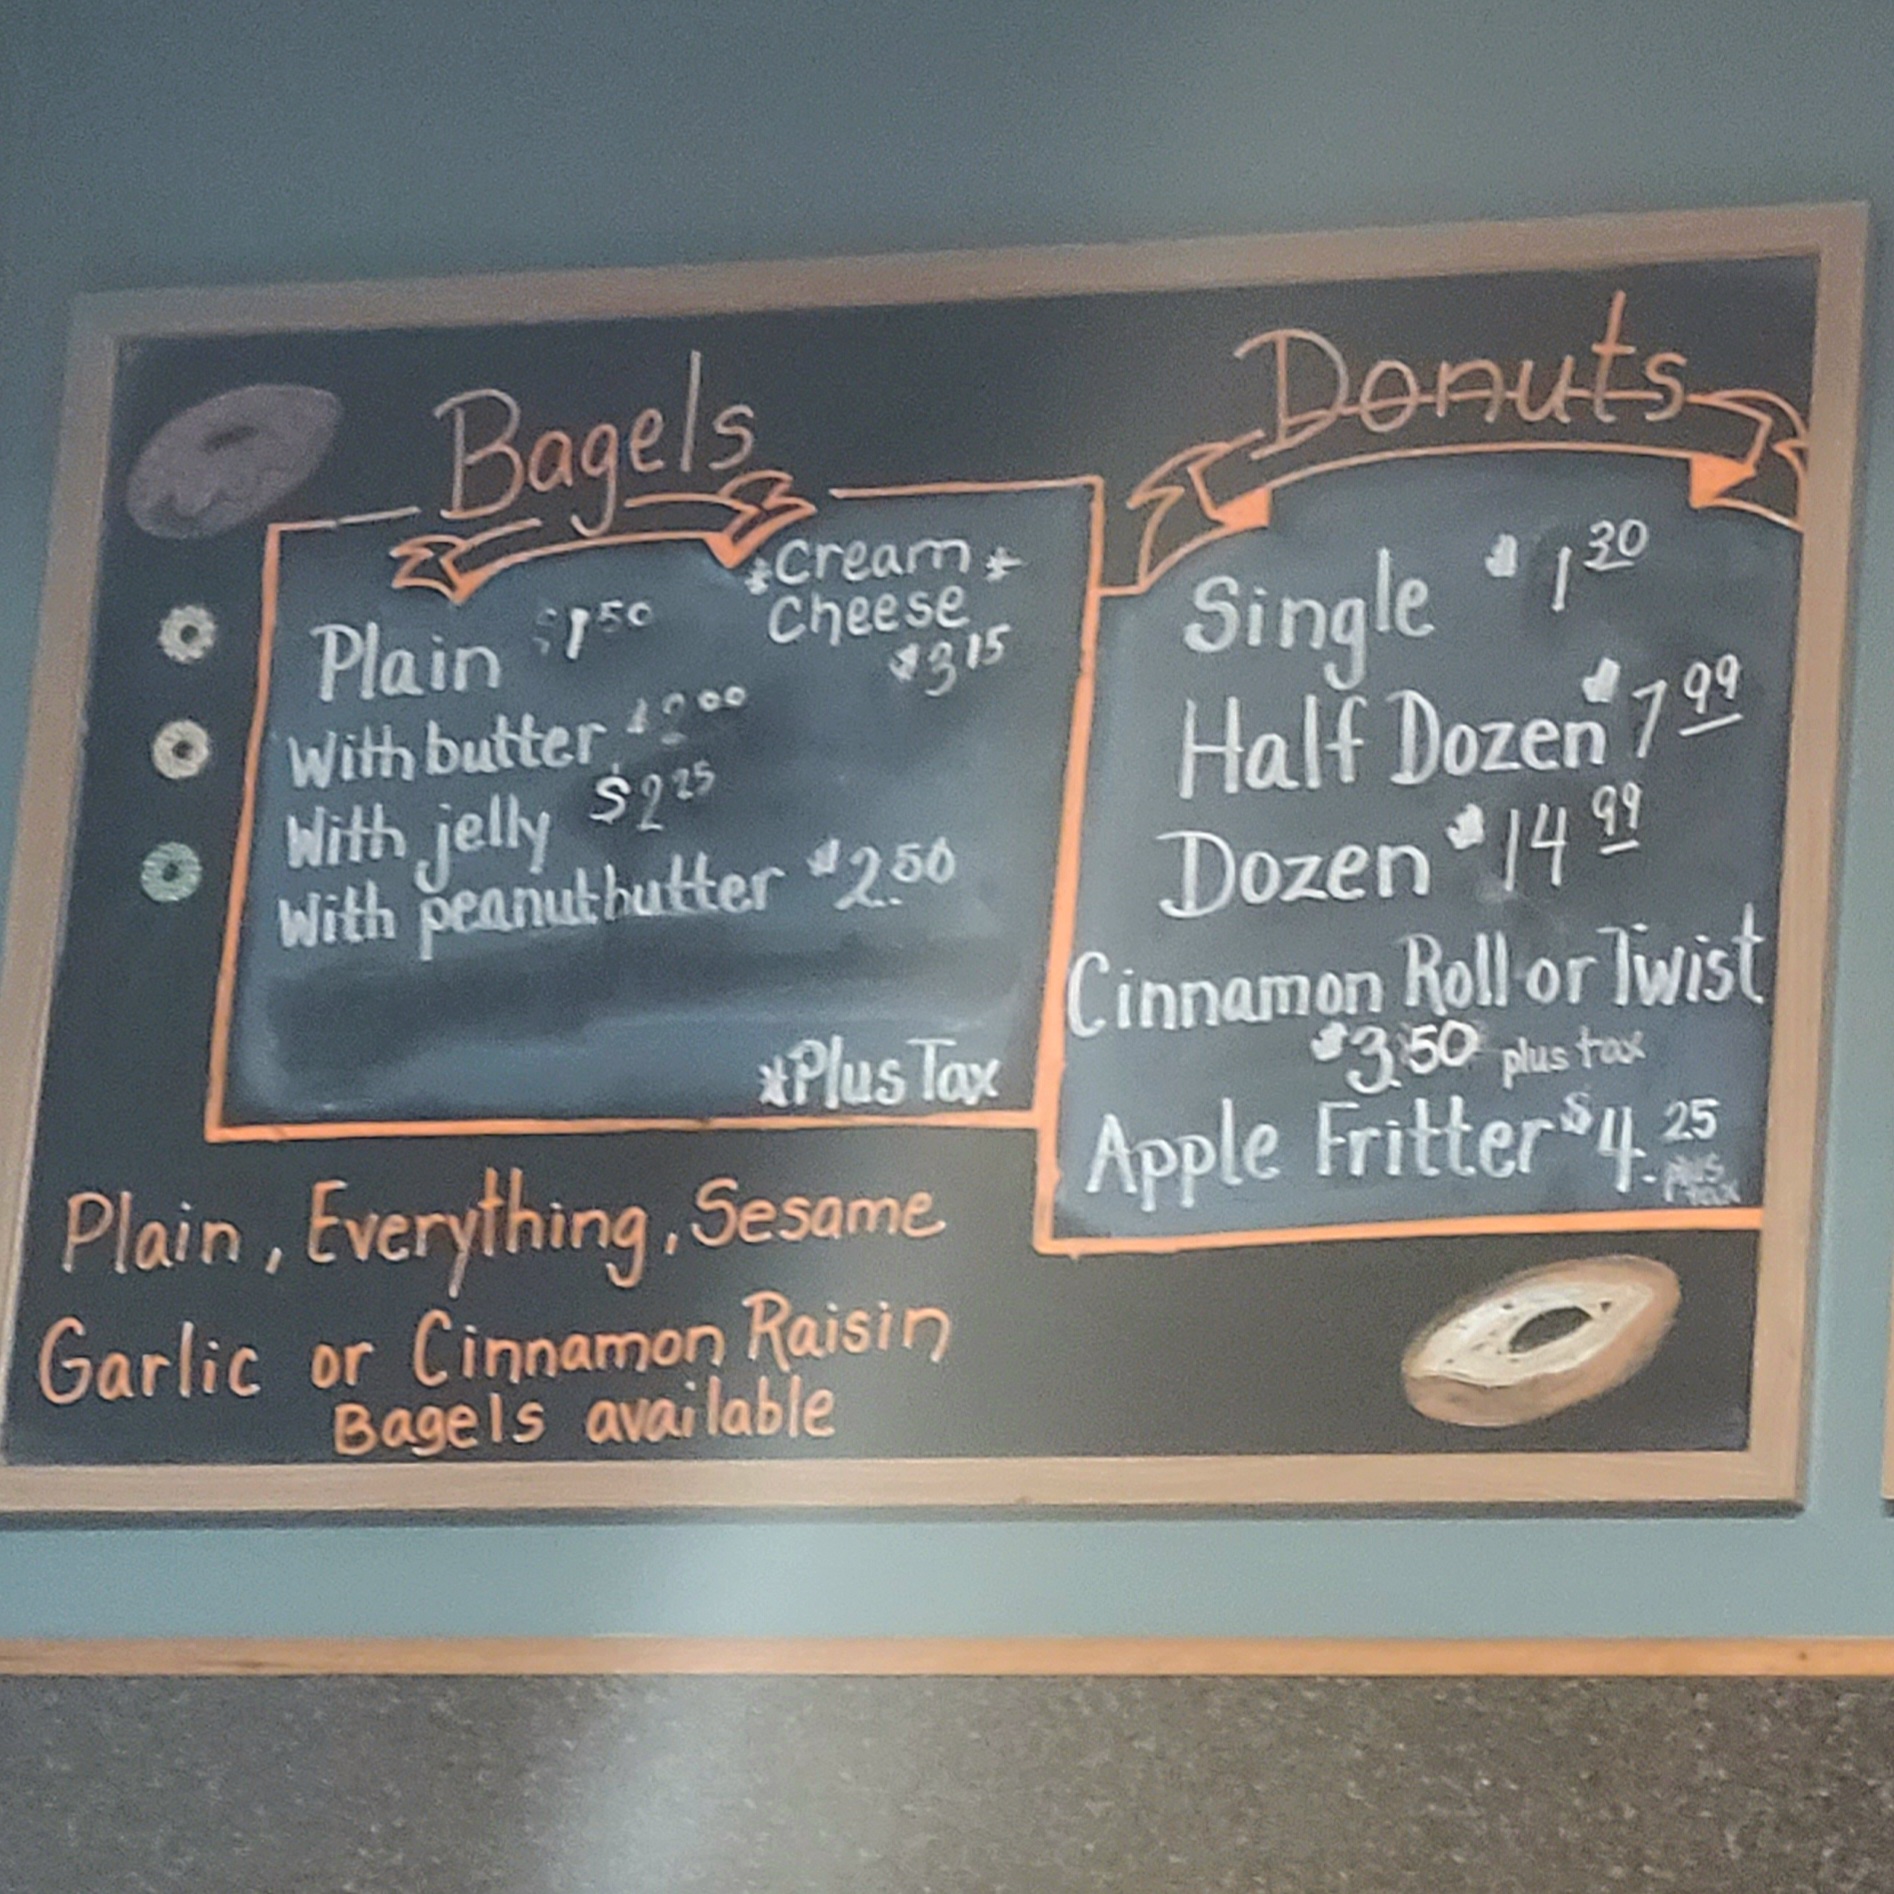 Bagels
Plain $1.50
*Cream*
Cheese
$3.15
With butter $2.00
With jelly $2.25
With peanutbutter $2.50
*Plus Tax
Donuts
Single $1.30
Half Dozen $7.99
Dozen $14.99
Cinnamon Roll or Twist
$3.50 plus tax
Apple Fritter $4.25
plus
tax
Plain, Everything, Sesame
Garlic or Cinnamon Raisin
Bagels available